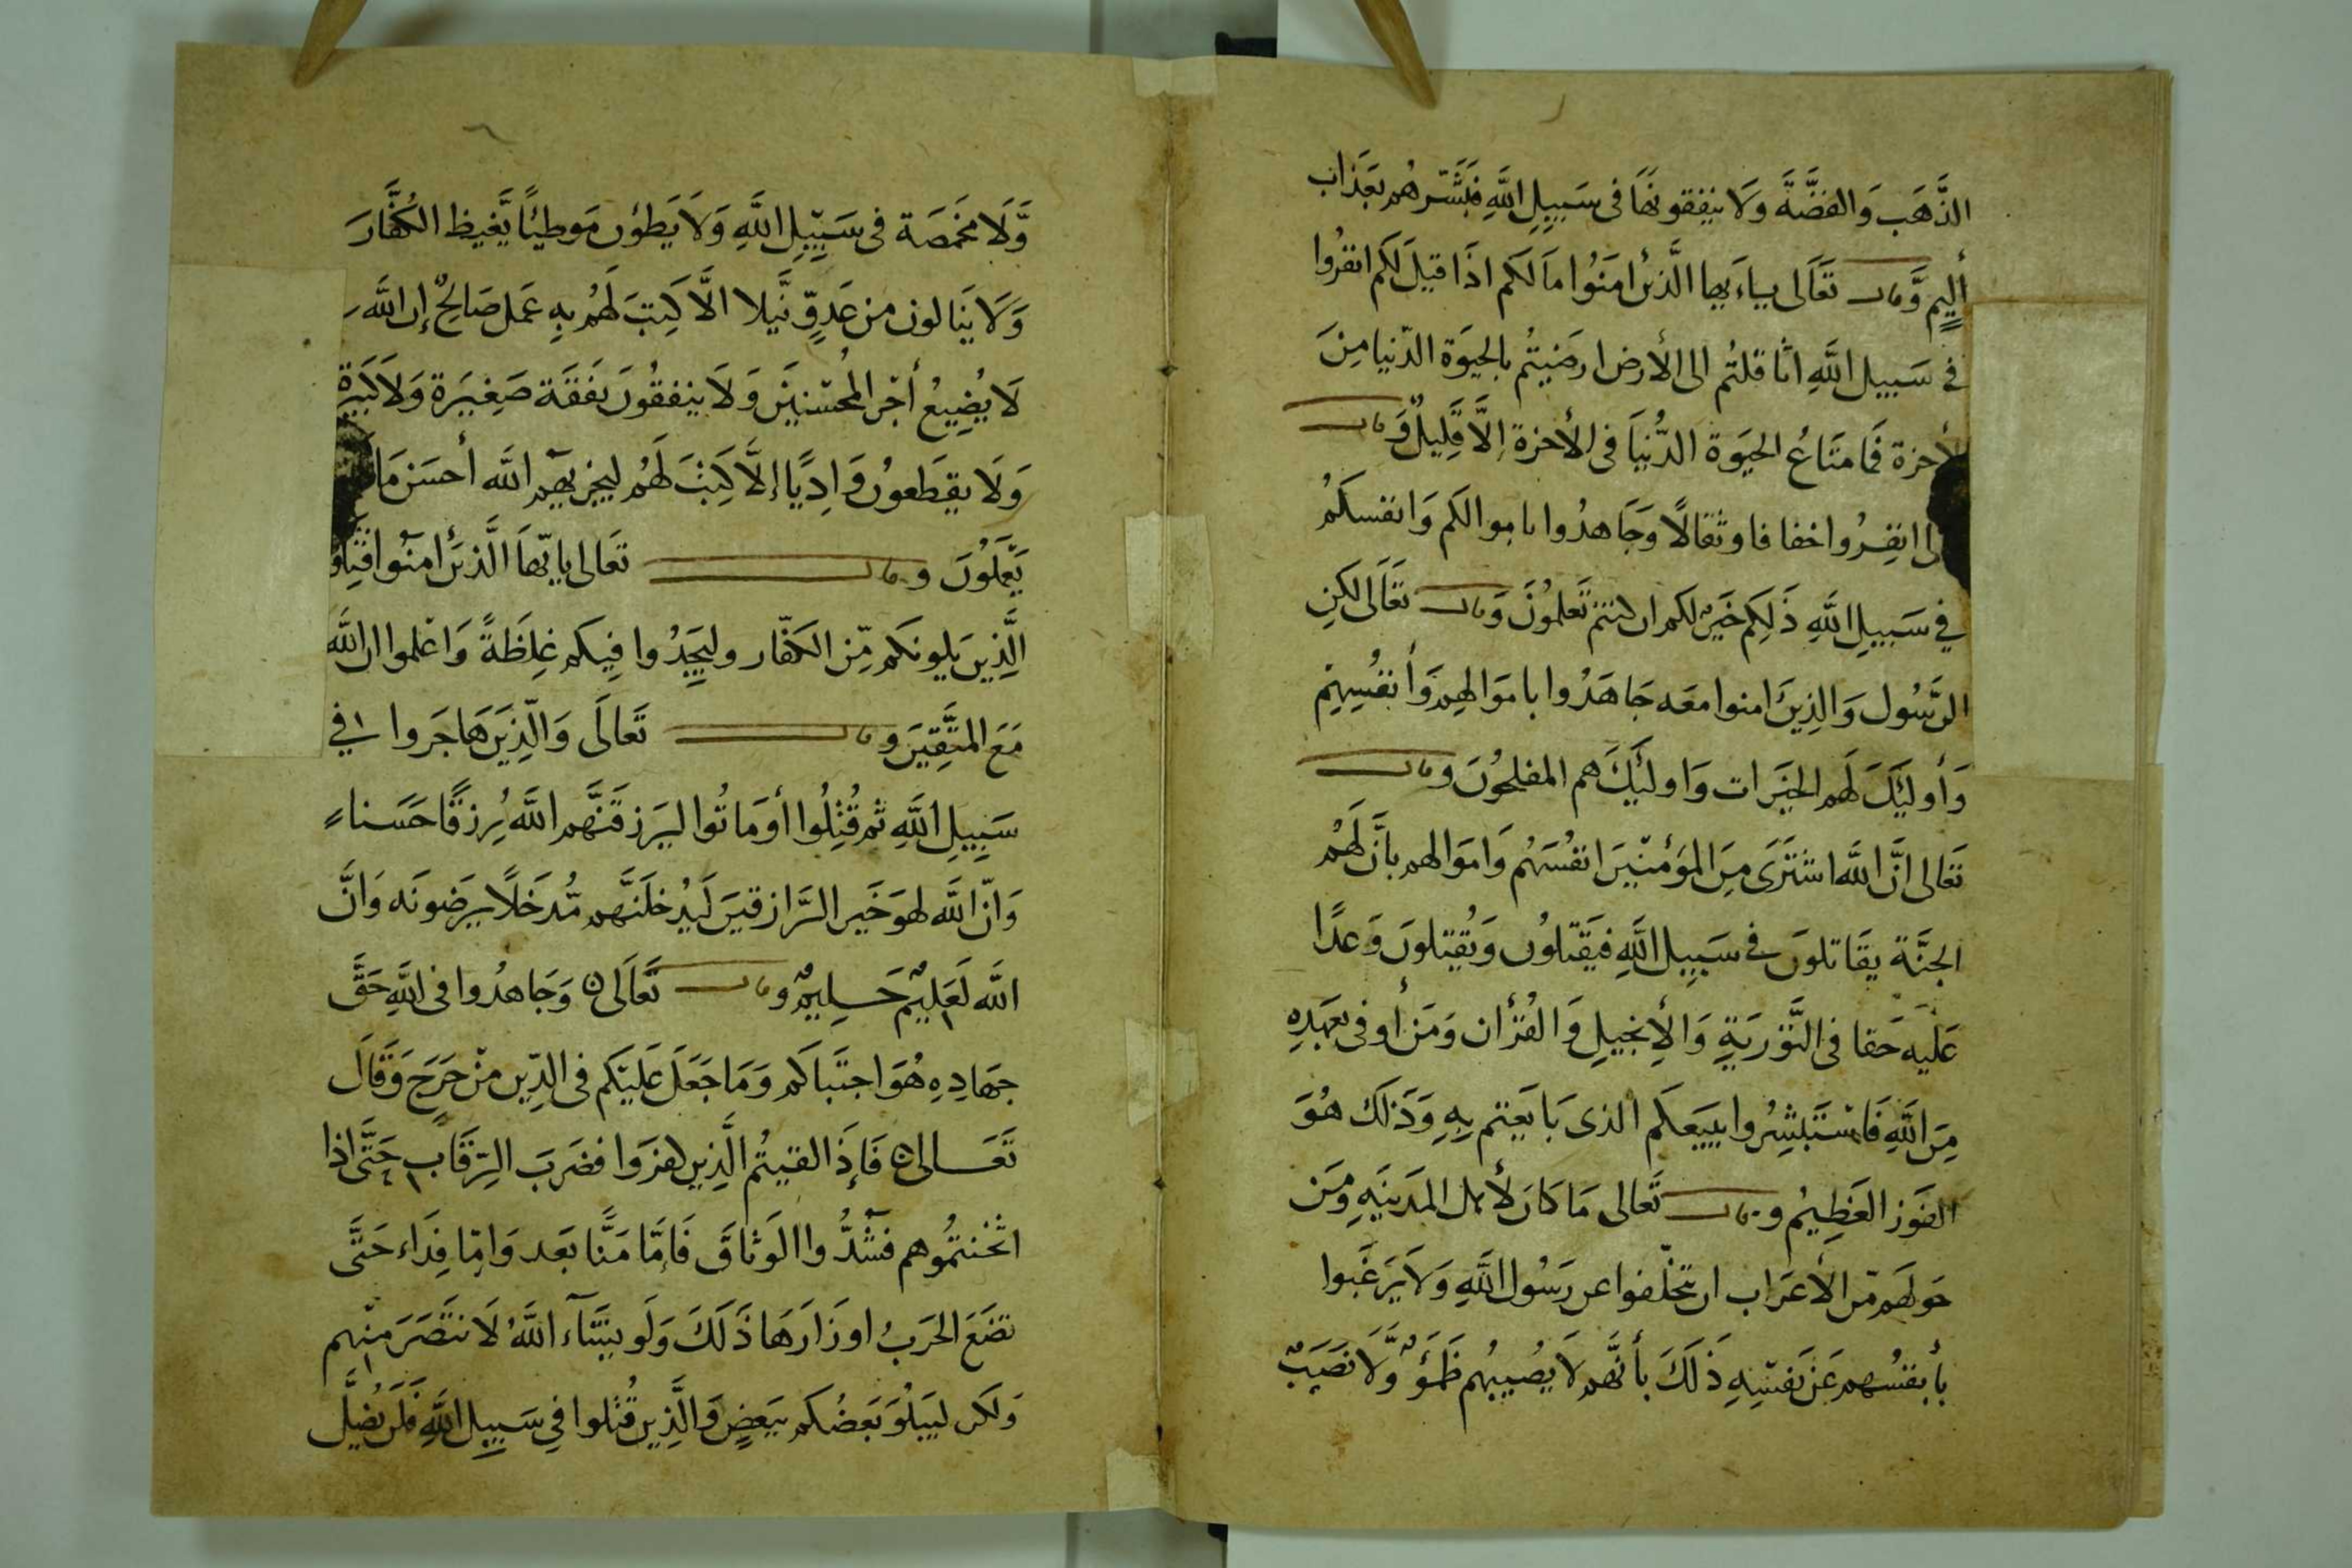 الذَّهَب وَالفضَّة وَلَا ينفقونهَا فى سَبِيلِ اللَّهِ فبَشّرهُم بعَذاب
أليم وَّقال تعَالى يـاءَيها الَّذين امَنوُا مَا لَكم اذَا قيلَ لكم انفرُوا
فى سَبِيل اللَّهِ اثّاقلتُم الى الأرض ارضيتُم بالحيَوة الدّنيا مِنَ
الأخرة فَما متَاعُ الحيَوة الدُّنيَا فى الأخرة إلَّا قَلِيلٌ وَقال
لى انفِرُوا خفافا وثقالًا وَجَاهدُوا باموالكم وَانفسكُم
فى سَبيلِ اللَّهِ ذَلِكم خَيرٌ لكم ان كنتم تَعلموُنَ وَقال تعَالَى لكنِ
الرَّسُول وَالذِينَ امنوا معَه جَاهَدُوا باموَالهِم وَأنفُسِهِم
وَأولَئِكَ لَهم الخيَرات وَاولئِكَ هم المفلحُونَ وقال
تعَالى انَّ اللَّه اشتَرَى مِنَ المؤمنيِنَ انفُسَهُم وَاموَالهم بأنَّ لَهُم
الجنَّة يقَاتلونَ فى سَبيِل اللَّهِ فيَقتلوُن وَيُقتلونَ وَعدًا
عَليه حَقا فى التَّورَيةِ وَالإنجيلِ وَالقُرأن وَمَن أوفى بعَهدِهِ
مِنَ اللَّهِ فَاستَبشِرُوا ببَيعكم الذى بَايَعتم بِهِ وَذَلك هُوَ
الفوَز العَظِيمُ وقال تَعالى مَا كانَ لأهل المَدينَةِ وَمَن
حَولَهم مّن الأعرَاب ان يتخلّفوا عن رَسُول اللَّهِ وَلَا يَرغَبوا
بأنفسُهم عَن نَفسِهِ ذَلَكَ بأنَّهم لَا يُصيبُهم ظَمَؤٌ وَّلَا نَصَبٌ
وَّلَا مَخمَصَة فى سَبِيِل اللَّهِ وَلَا يَطؤُن مَوطِئًا يَّغيظ الكُفَّارَ
وَلَا يَنَالون من عَدوٍّ نَّيلا الَّا كتِبَ لَهُم بِهِ عَمَل صَالحٌ إن اللَّه
لَا يُضِيعُ أجرَ المُحسِنيِنَ وَلَا ينفقُونَ نفَقَة صَغِيرَة وَلَا كَبَيِرَة
وَلَا يقطَعونُ وَادِيًا إلَّا كتِبَ لَهُم ليجزيَهُم اللَّه أحسَن مَا
يَعمَلُونَ وقال تعَالى يا يّهَا الَّذيَن امَنوا قَتِلوُ
الَّذِينَ يلونكم مّن الكفّار وليَجِدُوا فِيكم غِلظَةً وَاعلموا ان اللَّه
مَعَ المتَّقِيَن وقال تَعالَى وَالّذِينَ هَاجَروا فى
سَبِيِلِ اللَّهِ ثم قُتِلُوا أو مَاتُوا ليَرزقَنَّهم اللَّه رِزقًا حَسَنا
وَانّ اللَّه لهوَ خَير الرَّازقينَ لَيُدخلَنَّهم مُّدخَلًا يرَضونَه وَانَّ
اللَّه لَعَليمٌ حَـليمٌ وقال تَعَالَى وَجَاهدُوا فى اللَّهِ حَقَّ
جهَادِهِ هُوَ اجتَباكم وَمَا جَعَلَ عَلَيكم فى الدِّين مِن حَرَجٍ وَقَالَ
تَعَـالى فَإذَا لقيتُم الَّذِين كفرَوا فضَربَ الرِّقَاب حَتَّى اذا
اثخنتمُوهم فشُدُّوا الوَثاقَ فَامَّا مَنًّا بَعد وَامّا فِدَاء حَتَّى
تضَعَ الحَربُ اوزَارَهَا ذَلَكَ وَلَو يشَآء اللَّهُ لَانتَصَرَ منهم
وَلكن ليَبلُوَ بَعَضكم ببَعضٍ وَالَّذِين قُتلوا فى سَبِيِل اللَّهِ فَلَن يُضِلَّ